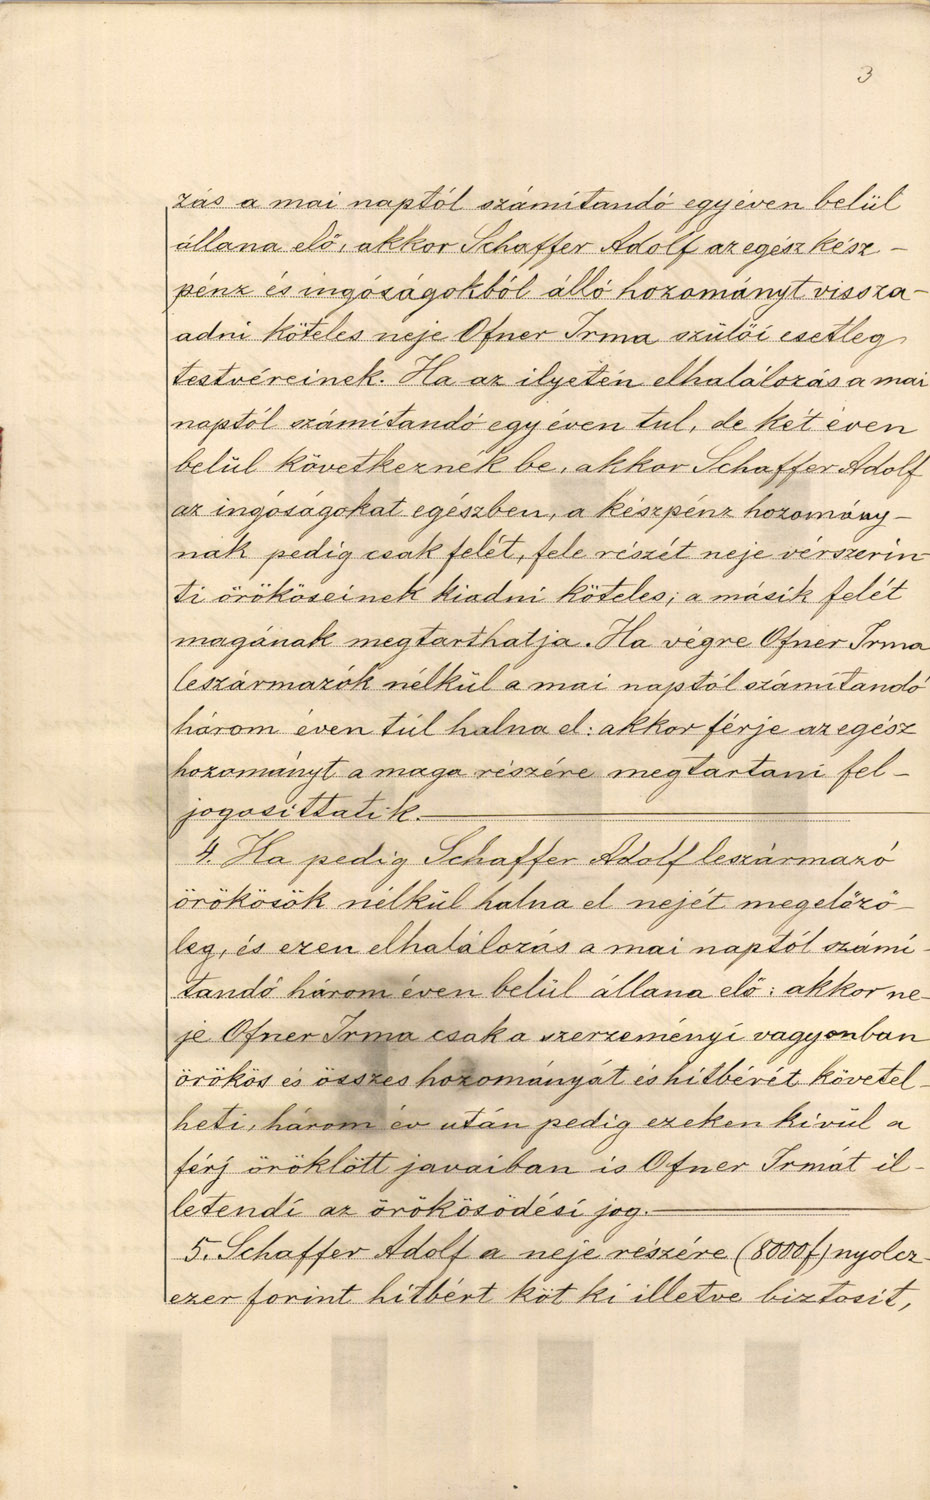 3
zás a mai naptól számítandó egy éven belül
állana elő, akkor Schaffer Adolf az egész kész-
pénz és ingóságokból álló hozományt vissza-
adni köteles neje Ofner Irma szülői esetleg
testvéreinek. Ha az ilyetén elhalálozás a mai
naptól számítandó egy éven tul, de két éven
belül következnék be, akkor Schaffer Adolf
az ingóságokat egészben, a készpénz hozomány-
nak pedig csak felét, fele részét neje vérszerin-
ti örököseinek kiadni köteles; a másik felét
magának megtarthatja. Ha végre Ofner Irma
leszármazók nélkül a mai naptól számítandó
három éven túl halna el: akkor férje az egész
hozományt a maga részére megtartani fel-
jogosíttatik.
4. Ha pedig Schaffer Adolf leszármazó
örökösök nélkül halna el nejét megelőző-
leg, és ezen elhalálozás a mai naptól számí-
tandó három éven belül állana elő: akkor ne-
je Ofner Irma csak a szerzeményi vagyonban
örökös és összes hozományát és hitbérét követel-
heti, három év után pedig ezeken kivül a
férj öröklött javaiban is Ofner Irmát il-
letendi az örökösödési jog.
5. Schaffer Adolf a neje részére (8000f) nyolcz-
ezer forint hitbért köt ki illetve biztosit,